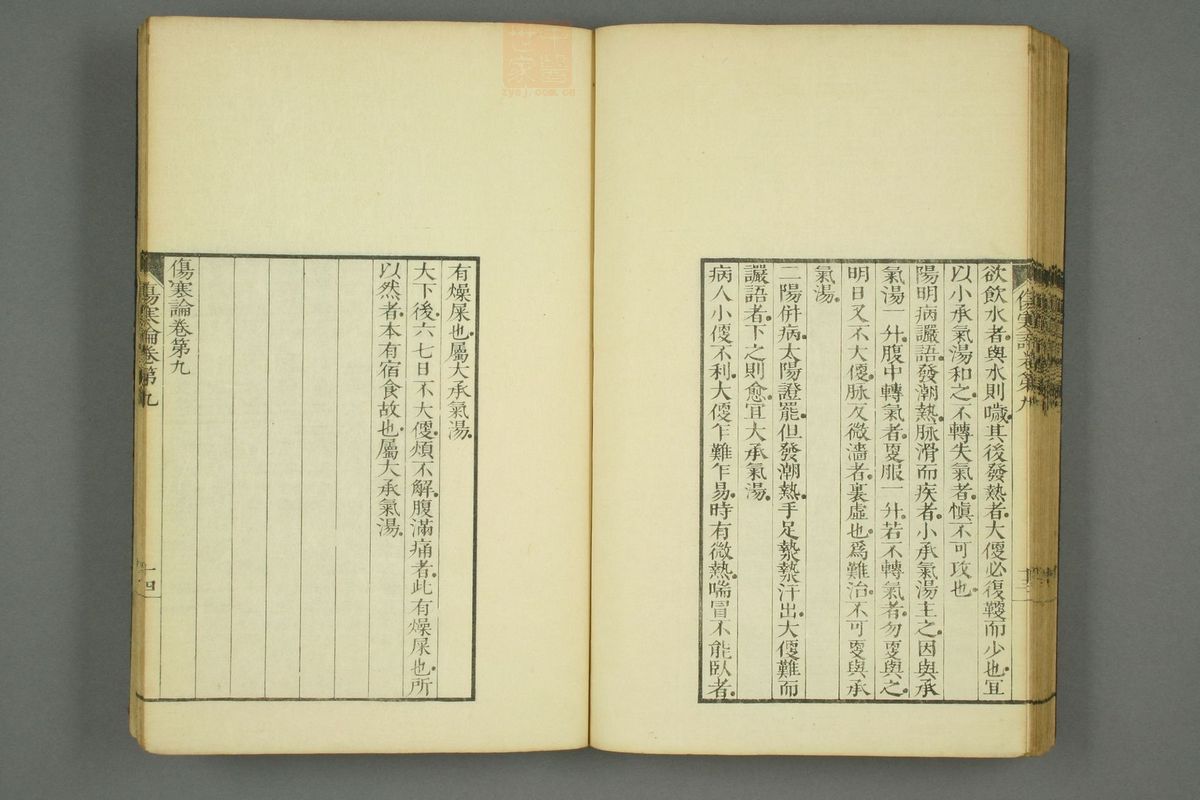 欲飲水者與水則噦其後發熱者大便必復鞕而少也宜
以小承氣湯和之不轉失氣者愼不可攻也
陽明病讝語發潮熱脉滑而疾者小承氣湯主之因與承
氣湯一升腹中轉氣者更服一升若不轉氣者勿更與之
明日又不大便脉反微濇者裏虛也爲難治不可更與承
氣湯
二陽併病太陽證罷但發潮熱手足漐漐汗出大便難而
讝語者下之則愈宜大承氣湯
病人小便不利大便乍難乍易時有微熱喘冒不能臥者
有燥屎也屬大承氣湯
大下後六七日不大便煩不解腹滿痛者此有燥屎也所
以然者本有宿食故也屬大承氣湯
傷寒論卷第九
傷寒論卷第九
十四
中醫世家
zysj.com.cn